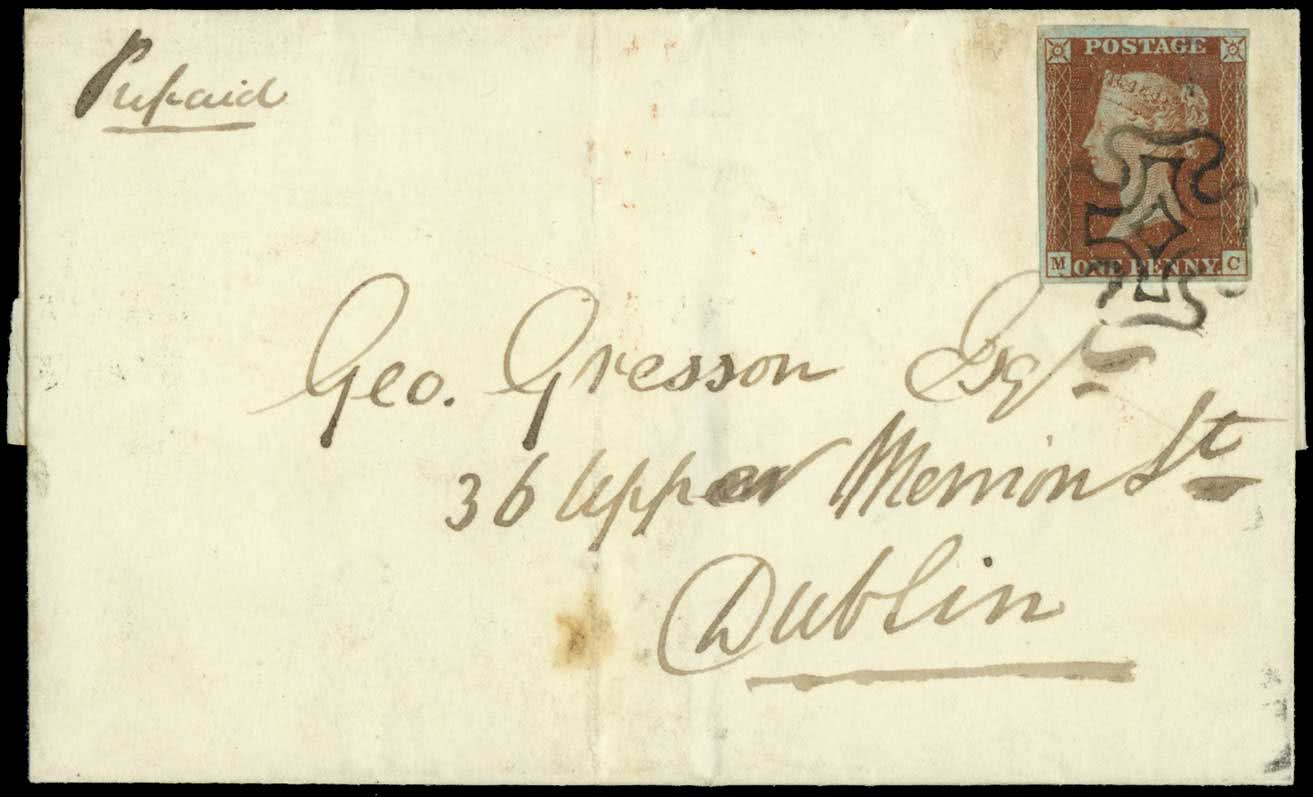 Prepaid
POSTAGE
M ONE PENNY. C
Geo. Gresson Esqr
36 Upper Merrion St
Dublin